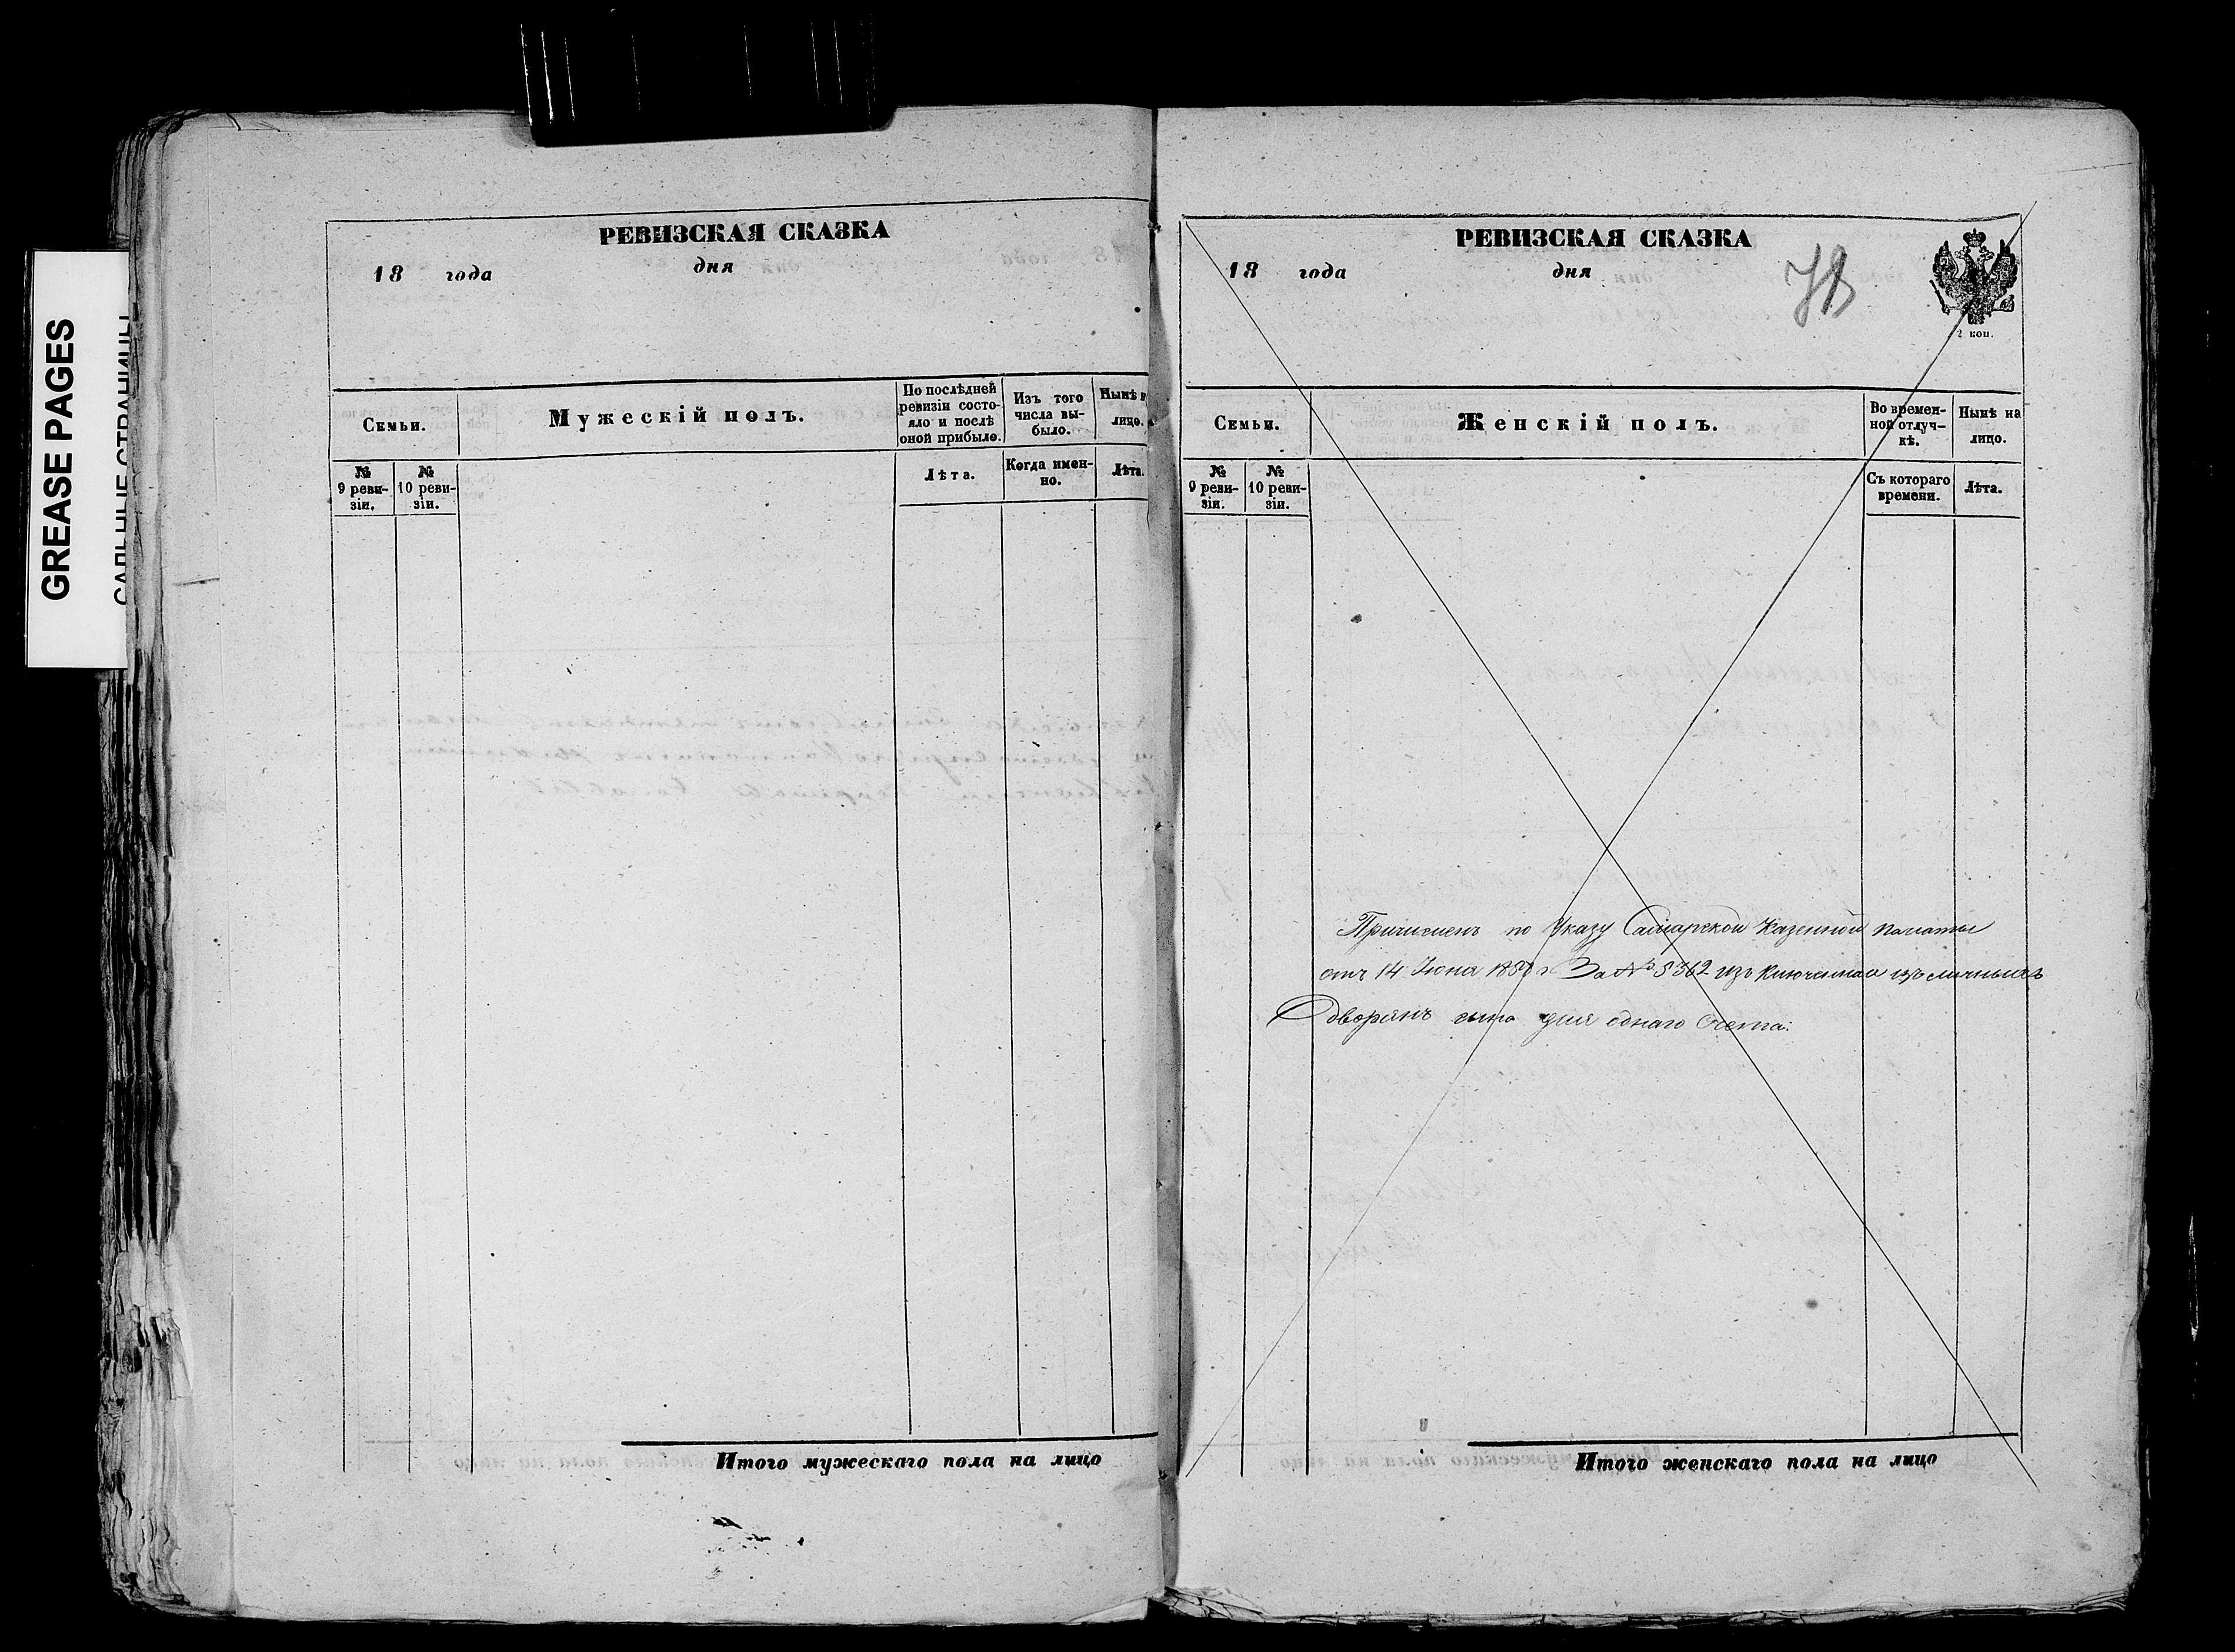 GREASE PAGES
САЛЬНЫЕ СТРАНИЦЫ
РЕВИЗСКАЯ СКАЗКА
18 года дня
Семьи.
Мужескій полъ.
По послѣдней
ревизіи состо-
яло и послѣ
оной прибыло.
Изъ того
числа вы-
было.
Нынѣ н
лицо.
№
9 реви-
зіи.
№
10 реви-
зіи.
Лѣта.
Когда имен-
но.
Лѣта.
Итого мужескаго пола на лицо
РЕВИЗСКАЯ СКАЗКА
18 года дня
78
2 коп.
Семьи.
Женскій полъ.
Во времен-
ной отлуч-
кѣ.
Нынѣ на
лицо.
№
9 реви-
зіи.
№
10 реви-
зіи.
Съ котораго
времени.
Лѣта.
Причисленъ по Указу Самарской Казенной палаты
отъ 14 Іюня За № 5362 изъ
Дворянъ для однаго Счета:
Итого женскаго пола на лицо